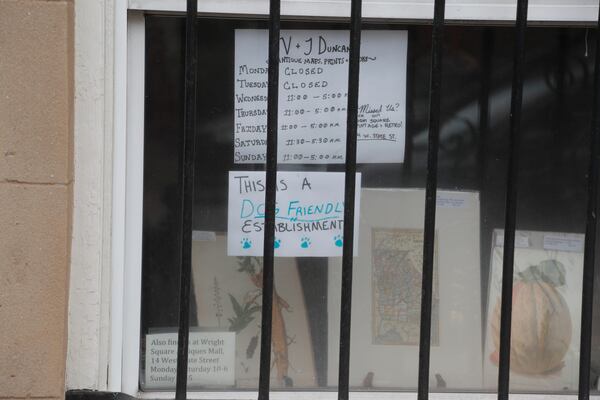 V + J DUNCAN
ANTIQUE MAPS, PRINTS
MONDAY CLOSED
TUESDAY CLOSED
WEDNESDAY 11:00 - 5:00 PM
THURSDAY 11:00 - 5:00 PM
FRIDAY 11:00 - 5:00 PM
SATURDAY 11:30 - 5:30 PM
SUNDAY 11:00 - 5:00 PM
Missed Us?
SQUARE
W. STATE ST.
THIS IS A
DOG FRIENDLY
ESTABLISHMENT
Also find us at Wright
Square Antiques Mall,
14 West State Street
Monday-Saturday 10-6
Sunday